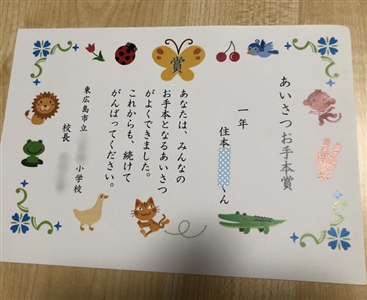 賞
あいさつお手本賞
一年
住本 くん
あなたは、みんなの
お手本となるあいさつ
がよくできました。
これからも、続けて
がんばってください。
東広島市立 小学校
校長